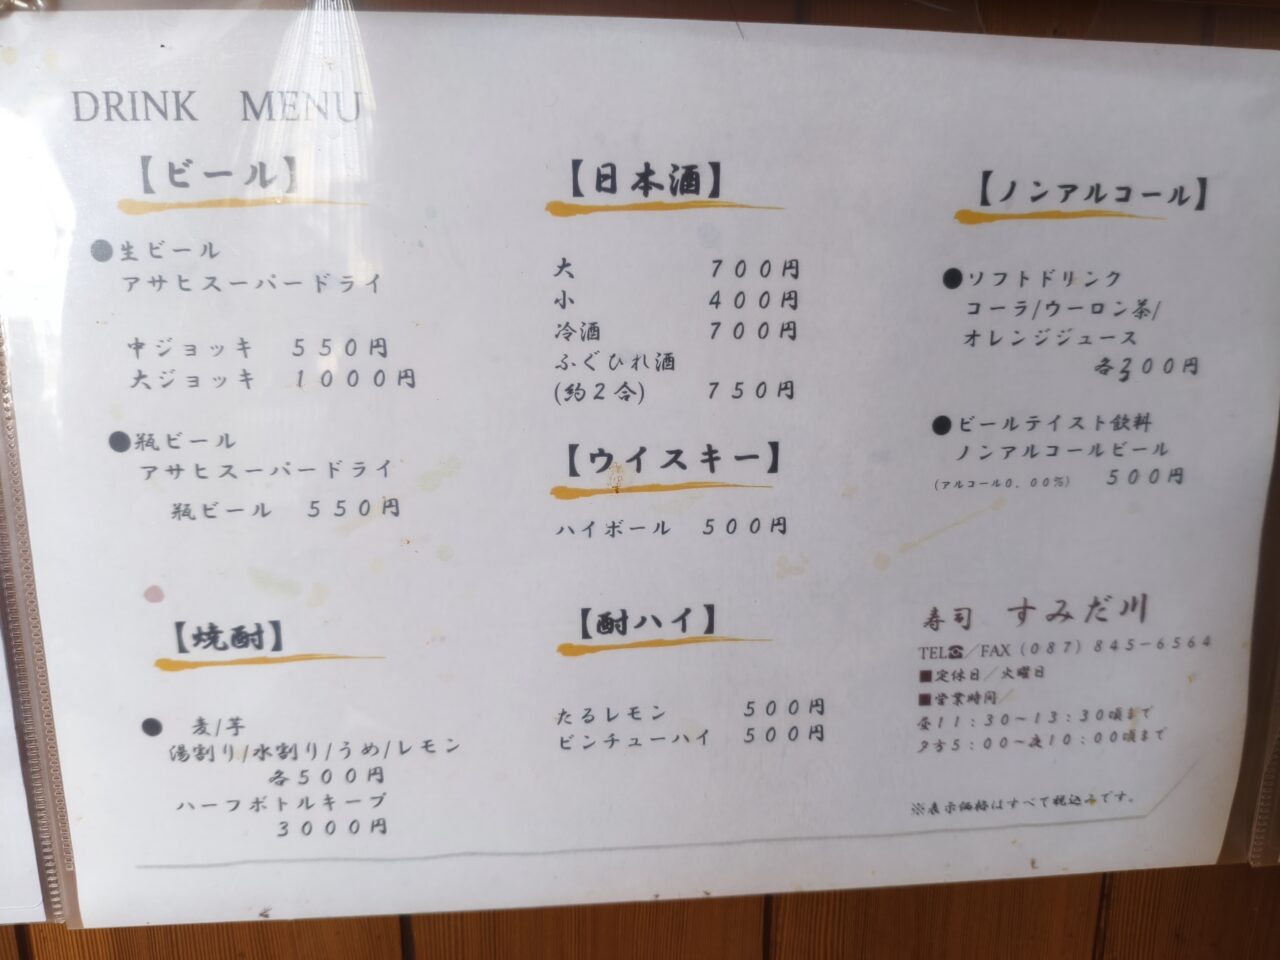 DRINK MENU
【ビール】
●生ビール
アサヒスーパードライ
中ジョッキ 550円
大ジョッキ 1000円
●瓶ビール
アサヒスーパードライ
瓶ビール 550円
【焼酎】
● 麦/芋
湯割り/水割り/うめ/レモン
各500円
ハーフボトルキープ
3000円
【日本酒】
大 700円
小 400円
冷酒 700円
ふぐひれ酒
(約2合) 750円
【ウイスキー】
ハイボール 500円
【酎ハイ】
たるレモン 500円
ビンチューハイ 500円
【ノンアルコール】
●ソフトドリンク
コーラ/ウーロン茶/
オレンジジュース
各300円
●ビールテイスト飲料
ノンアルコールビール
(アルコール0.00%) 500円
寿司 すみだ川
TEL☎/FAX(087)845-6564
■定休日/火曜日
■営業時間/
昼11:30~13:30頃まで
夕方5:00~夜10:00頃まで
※表示価格はすべて税込みです。